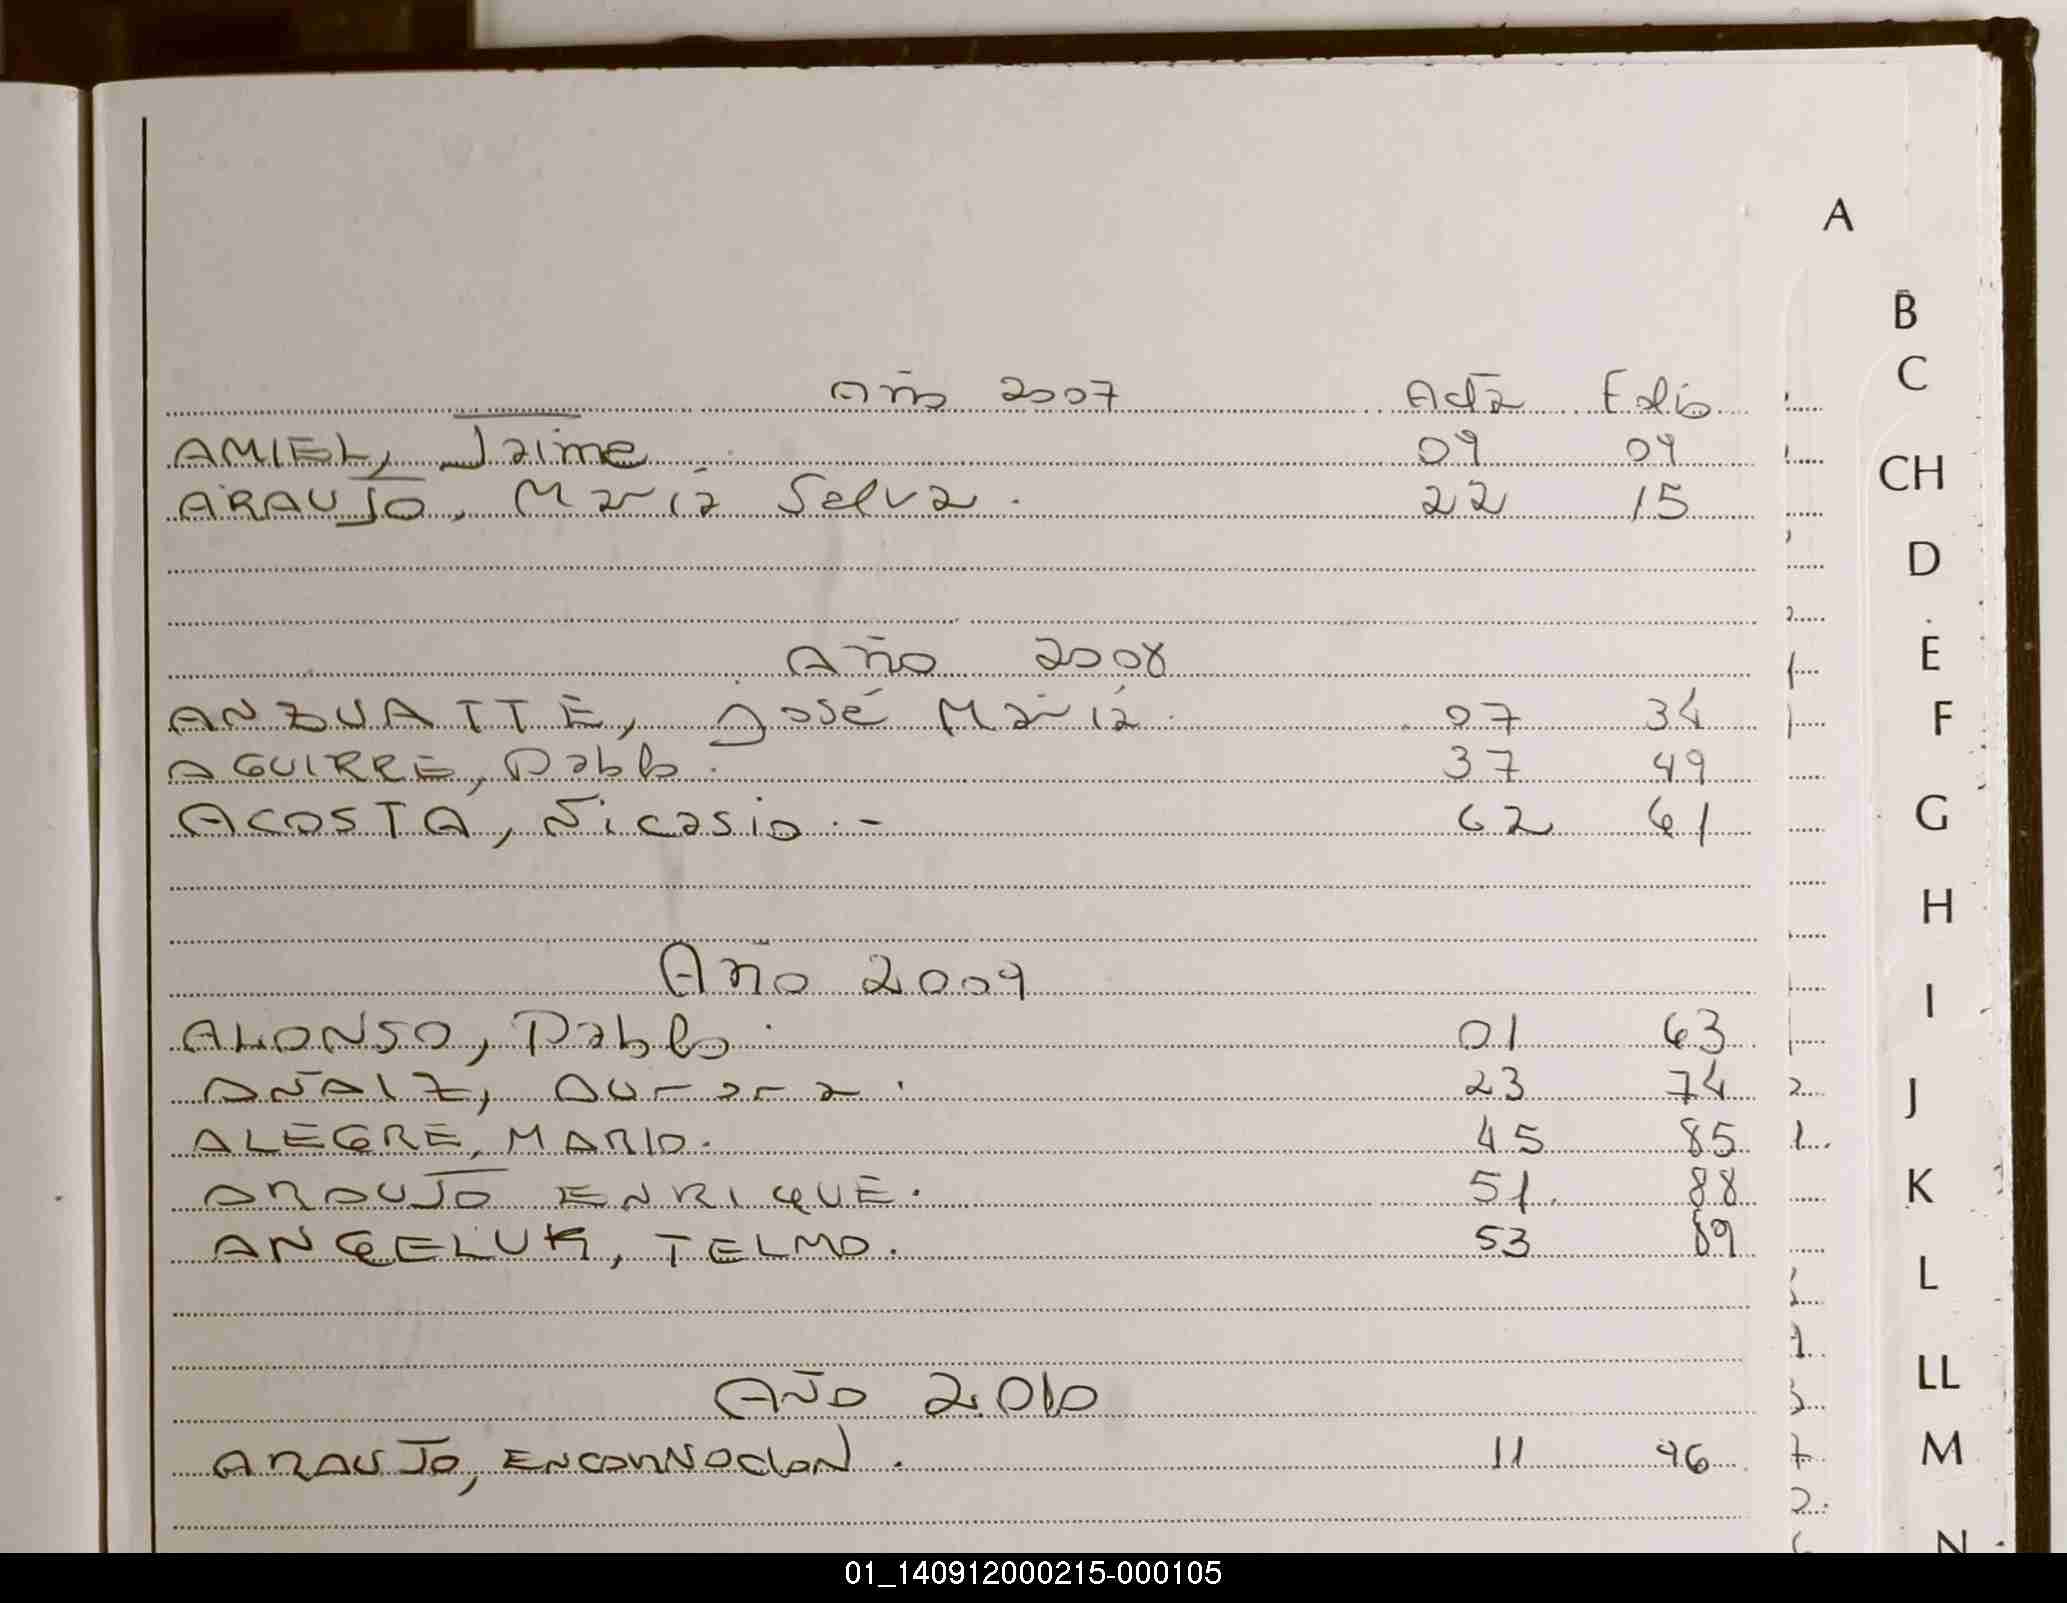 A
B
C
Año 2007 Acta Folio
AMIEL, Jaime 09 09
CH
ARAUJO, María Selva. 22 15
D
E
Año 2008
F
ANZUATTE, José María. 07 34
AGUIRRE, Pablo. 37 49
G
ACOSTA, Nicasio.- 62 61
H
Año 2009
I
ALONSO, Pablo. 01 63
J
AÑAIZ, Aurora. 23 74
ALEGRE, MARIO. 45 85
K
ARAUJO ENRIQUE. 51 88
ANGELUK, TELMO. 53 89
L
LL
Año 2.010
M
ARAUJO, ENCARNACION. 11 96
N
01_140912000215-000105